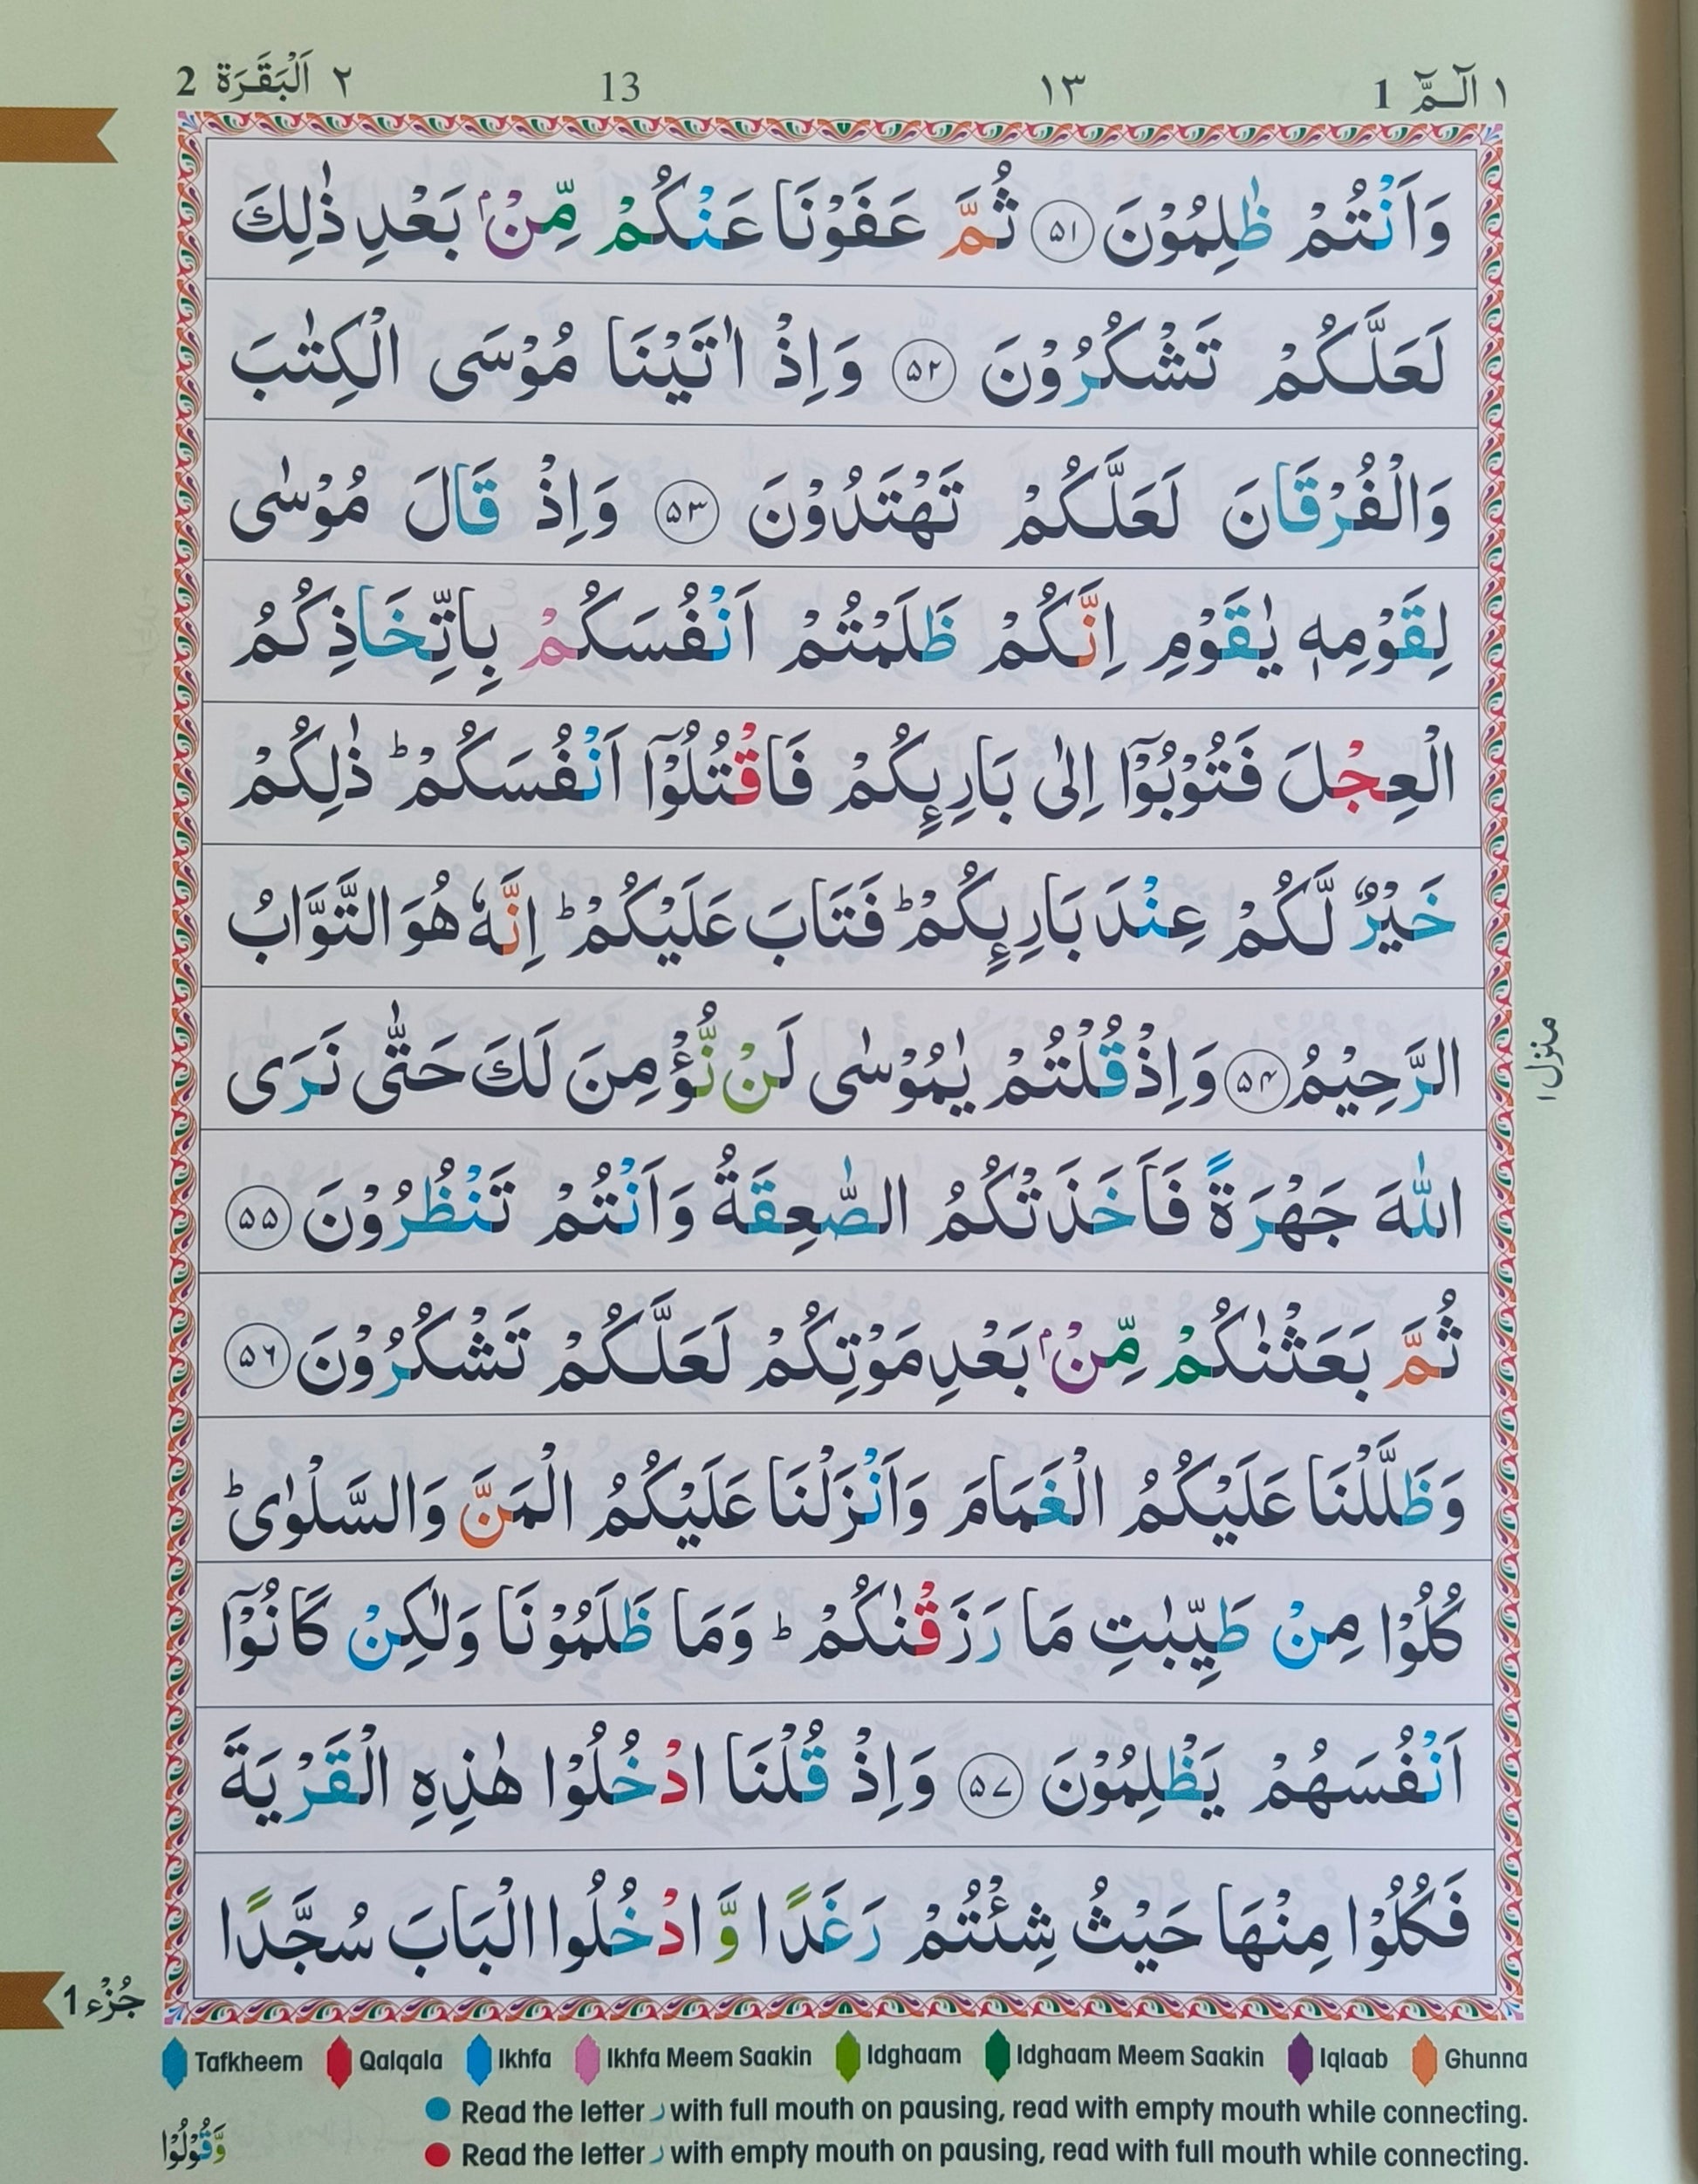 ١ الٓـمّٓ 1
١٣
13
٢ اَلْبَقَرَة 2
وَاَنْتُمْ ظٰلِمُوْنَ ۵۱ ثُمَّ عَفَوْنَا عَنْكُمْ مِّنْۢ بَعْدِ ذٰلِكَ
لَعَلَّكُمْ تَشْكُرُوْنَ ۵۲ وَاِذْ اٰتَيْنَا مُوْسَى الْكِتٰبَ
وَالْفُرْقَانَ لَعَلَّكُمْ تَهْتَدُوْنَ ۵۳ وَاِذْ قَالَ مُوْسٰى
لِقَوْمِهٖ يٰقَوْمِ اِنَّكُمْ ظَلَمْتُمْ اَنْفُسَكُمْ بِاتِّخَاذِكُمُ
الْعِجْلَ فَتُوْبُوْٓا اِلٰى بَارِئِكُمْ فَاقْتُلُوْٓا اَنْفُسَكُمْ ؕ ذٰلِكُمْ
خَيْرٌ لَّكُمْ عِنْدَ بَارِئِكُمْ ؕ فَتَابَ عَلَيْكُمْ ؕ اِنَّهٗ هُوَ التَّوَّابُ
الرَّحِيْمُ ۵۴ وَاِذْ قُلْتُمْ يٰمُوْسٰى لَنْ نُّؤْمِنَ لَكَ حَتّٰى نَرَى
اللّٰهَ جَهْرَةً فَاَخَذَتْكُمُ الصّٰعِقَةُ وَاَنْتُمْ تَنْظُرُوْنَ ۵۵
ثُمَّ بَعَثْنٰكُمْ مِّنْۢ بَعْدِ مَوْتِكُمْ لَعَلَّكُمْ تَشْكُرُوْنَ ۵۶
وَظَلَّلْنَا عَلَيْكُمُ الْغَمَامَ وَاَنْزَلْنَا عَلَيْكُمُ الْمَنَّ وَالسَّلْوٰى ؕ
كُلُوْا مِنْ طَيِّبٰتِ مَا رَزَقْنٰكُمْ ؕ وَمَا ظَلَمُوْنَا وَلٰكِنْ كَانُوْٓا
اَنْفُسَهُمْ يَظْلِمُوْنَ ۵۷ وَاِذْ قُلْنَا ادْخُلُوْا هٰذِهِ الْقَرْيَةَ
فَكُلُوْا مِنْهَا حَيْثُ شِئْتُمْ رَغَدًا وَّادْخُلُوا الْبَابَ سُجَّدًا
منزل ١
جُزْء 1
Tafkheem Qalqala Ikhfa Ikhfa Meem Saakin Idghaam Idghaam Meem Saakin Iqlaab Ghunna
Read the letter ر with full mouth on pausing, read with empty mouth while connecting.
Read the letter ر with empty mouth on pausing, read with full mouth while connecting.
وَّقُوْلُوْا